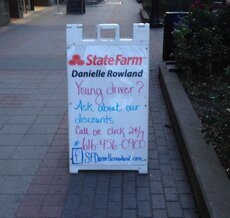 State Farm
Danielle Rowland
Young driver?
Ask about our
discounts.
Call or click 24/7
* 616-456-0900
SFDanielleRowland.com